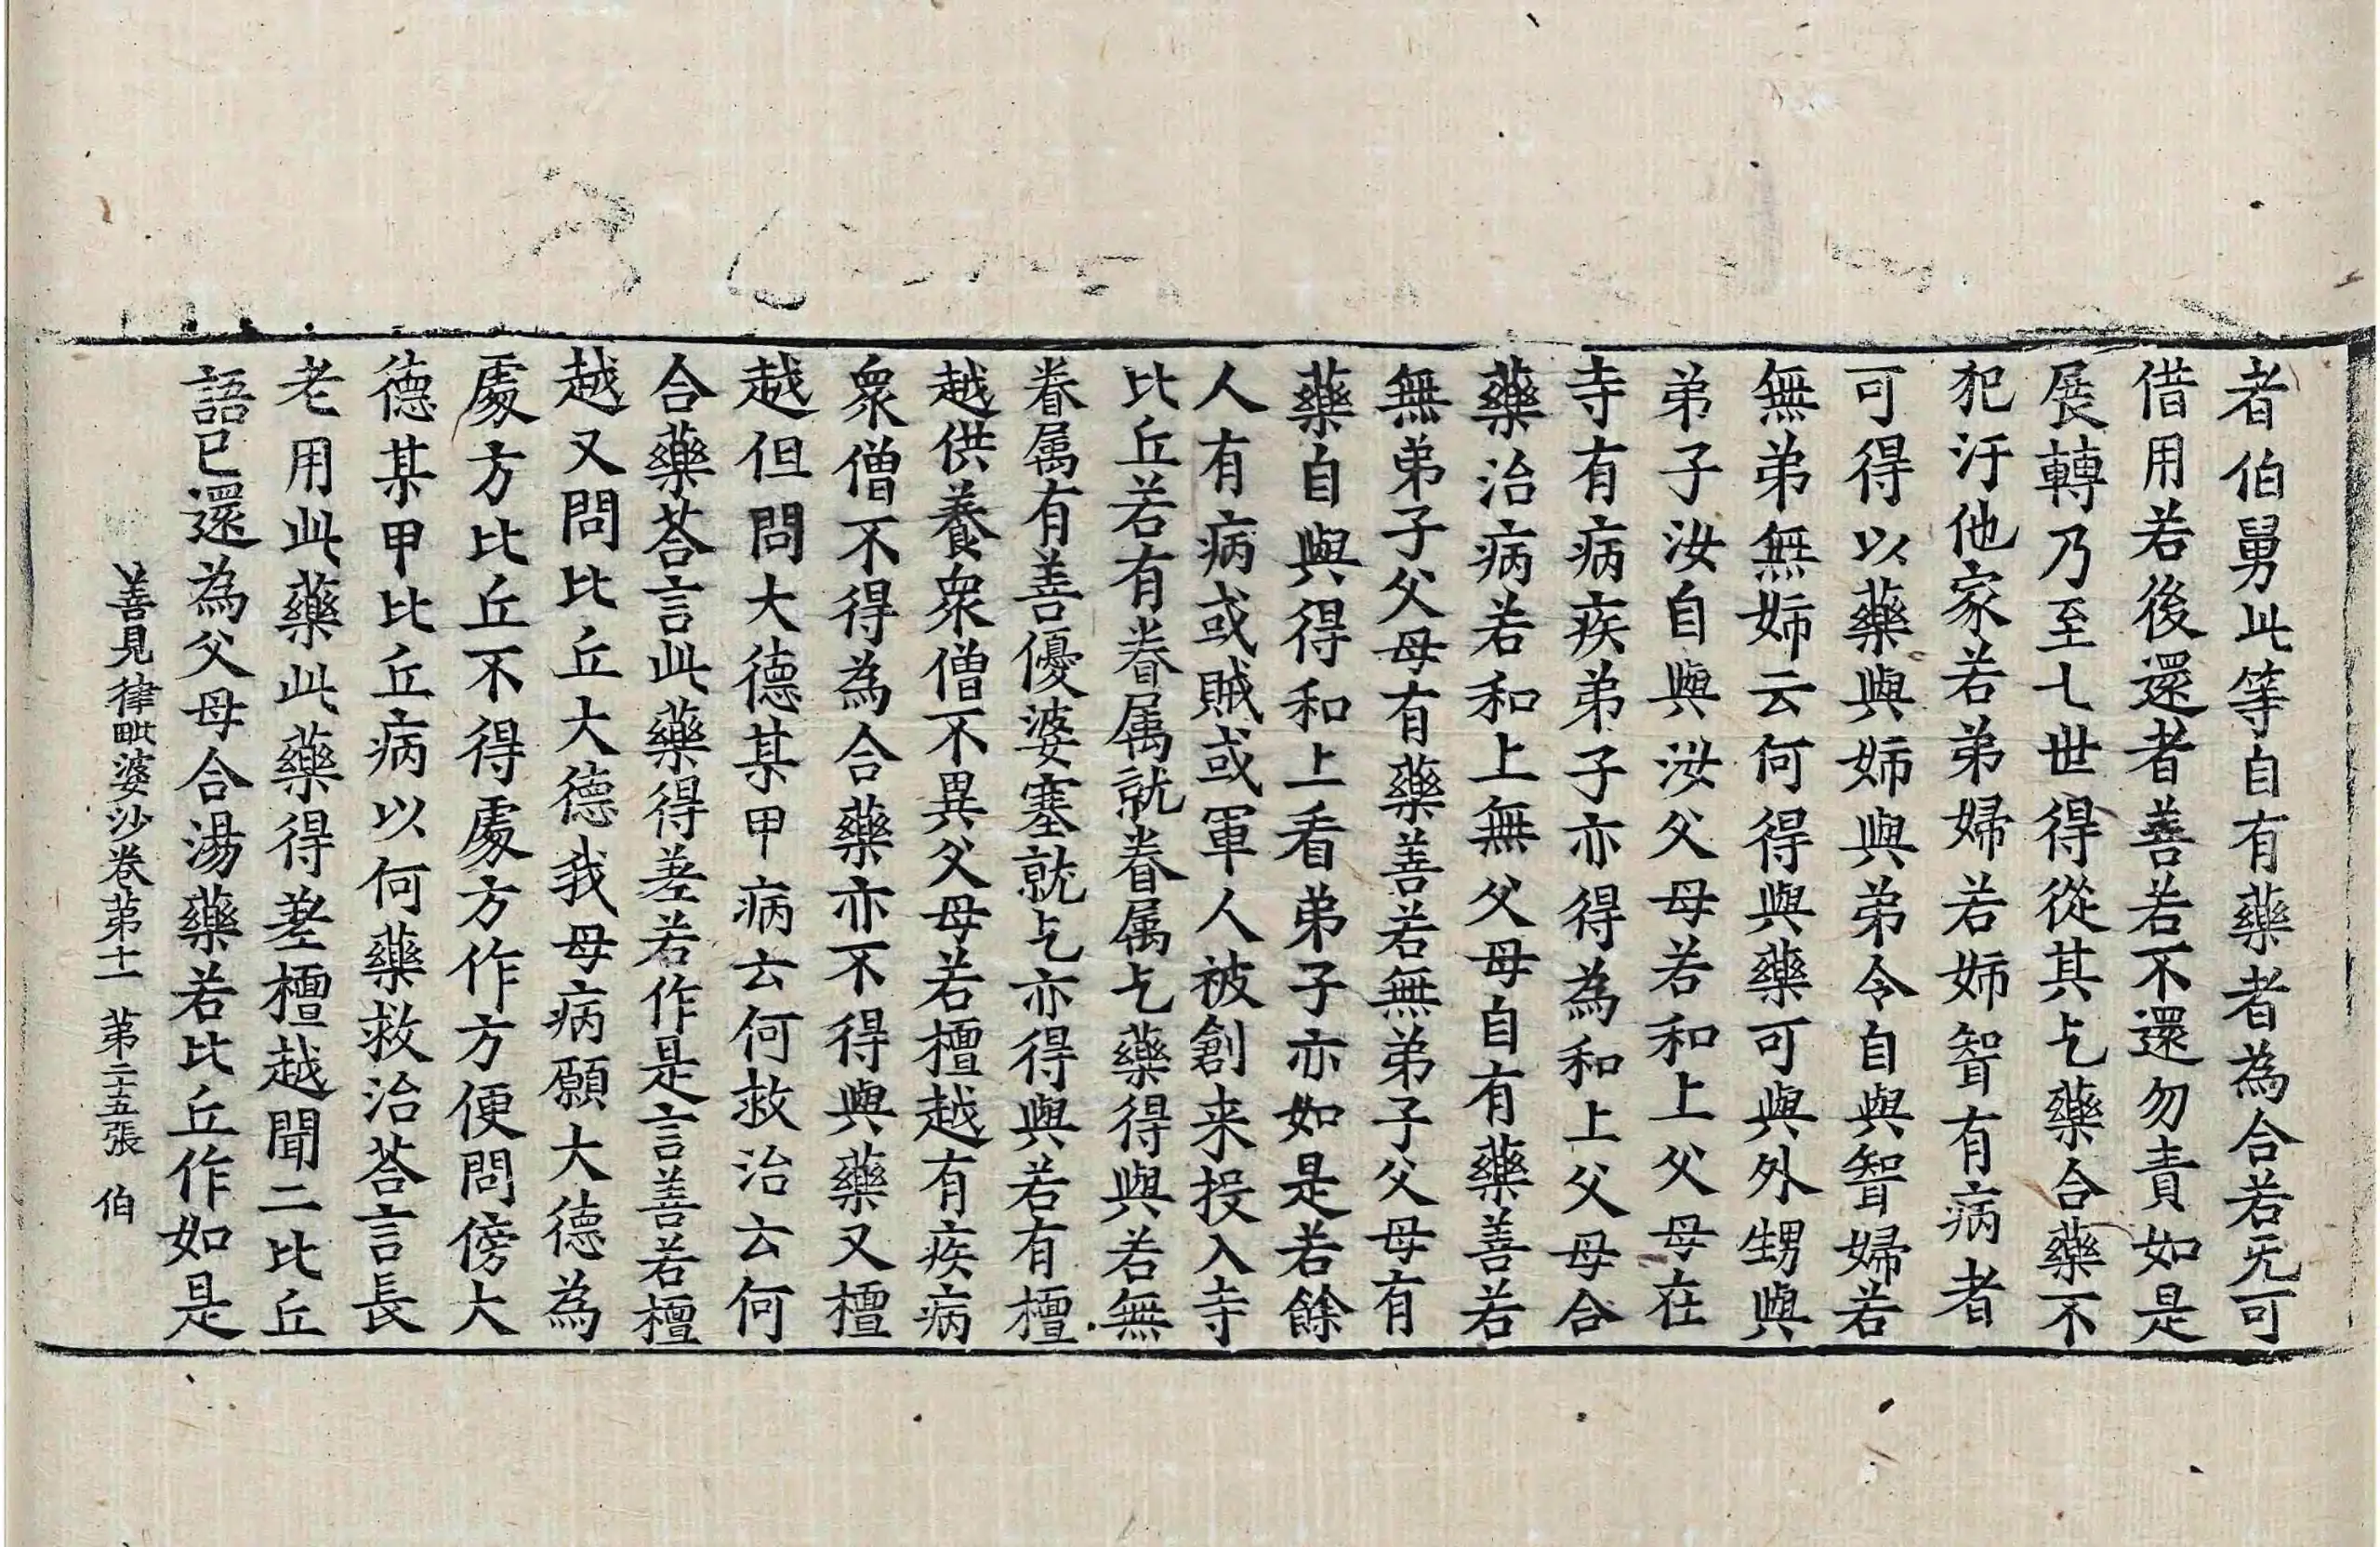 者伯舅此等自有藥者為合若无可
借用若後還者善若不還勿責如是
展轉乃至七世得從其乞藥合藥不
犯汙他家若弟婦若姉聟有病者
可得以藥與姉與弟令自與聟婦若
無弟無姉云何得與藥可與外甥與
弟子汝自與汝父母若和上父母在
寺有病疾弟子亦得為和上父母合
藥治病若和上無父母自有藥善若
無弟子父母有藥善若無弟子父母有
藥自與得和上看弟子亦如是若餘
人有病或賊或軍人被創来投入寺
比丘若有眷属就眷属乞藥得與若無
眷属有善優婆塞就乞亦得與若有檀
越供養衆僧不異父母若檀越有疾病
衆僧不得為合藥亦不得與藥又檀
越但問大德某甲病云何救治云何
合藥荅言此藥得差若作是言善若檀
越又問比丘大德我母病願大德為
處方比丘不得處方作方便問傍大
德某甲比丘病以何藥救治荅言長
老用此藥此藥得差檀越聞二比丘
語已還為父母合湯藥若比丘作如是
善見律毗婆沙卷第十一 第二十五張 伯